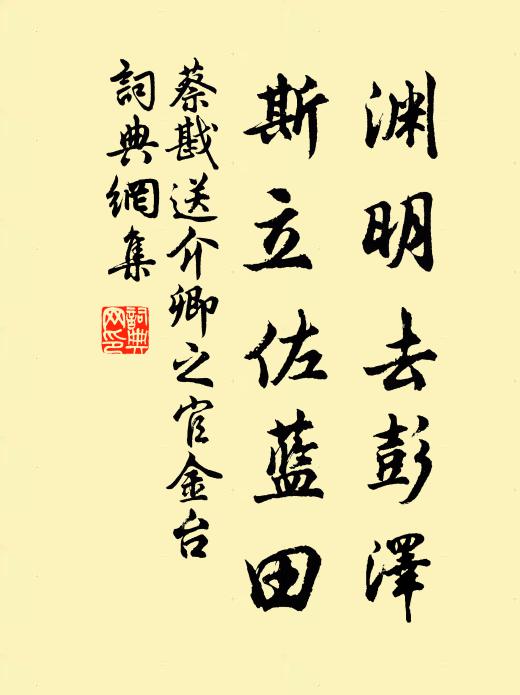 渊明去彭澤
斯立佐藍田
蔡戡送介卿之官金台
詞典網集
詞典网印